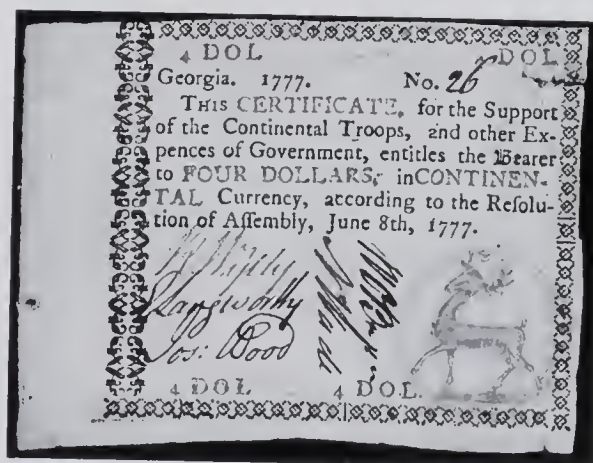 4 DOL DOL
Georgia. 1777. No. 26
THIS CERTIFICATE, for the Support
of the Continental Troops, and other Ex-
pences of Government, entitles the Bearer
to FOUR DOLLARS, in CONTINEN-
TAL Currency, according to the Reſolu-
tion of Aſſembly, June 8th, 1777.
Langworthy
Jos: Wood
4 DOL 4 DOL.